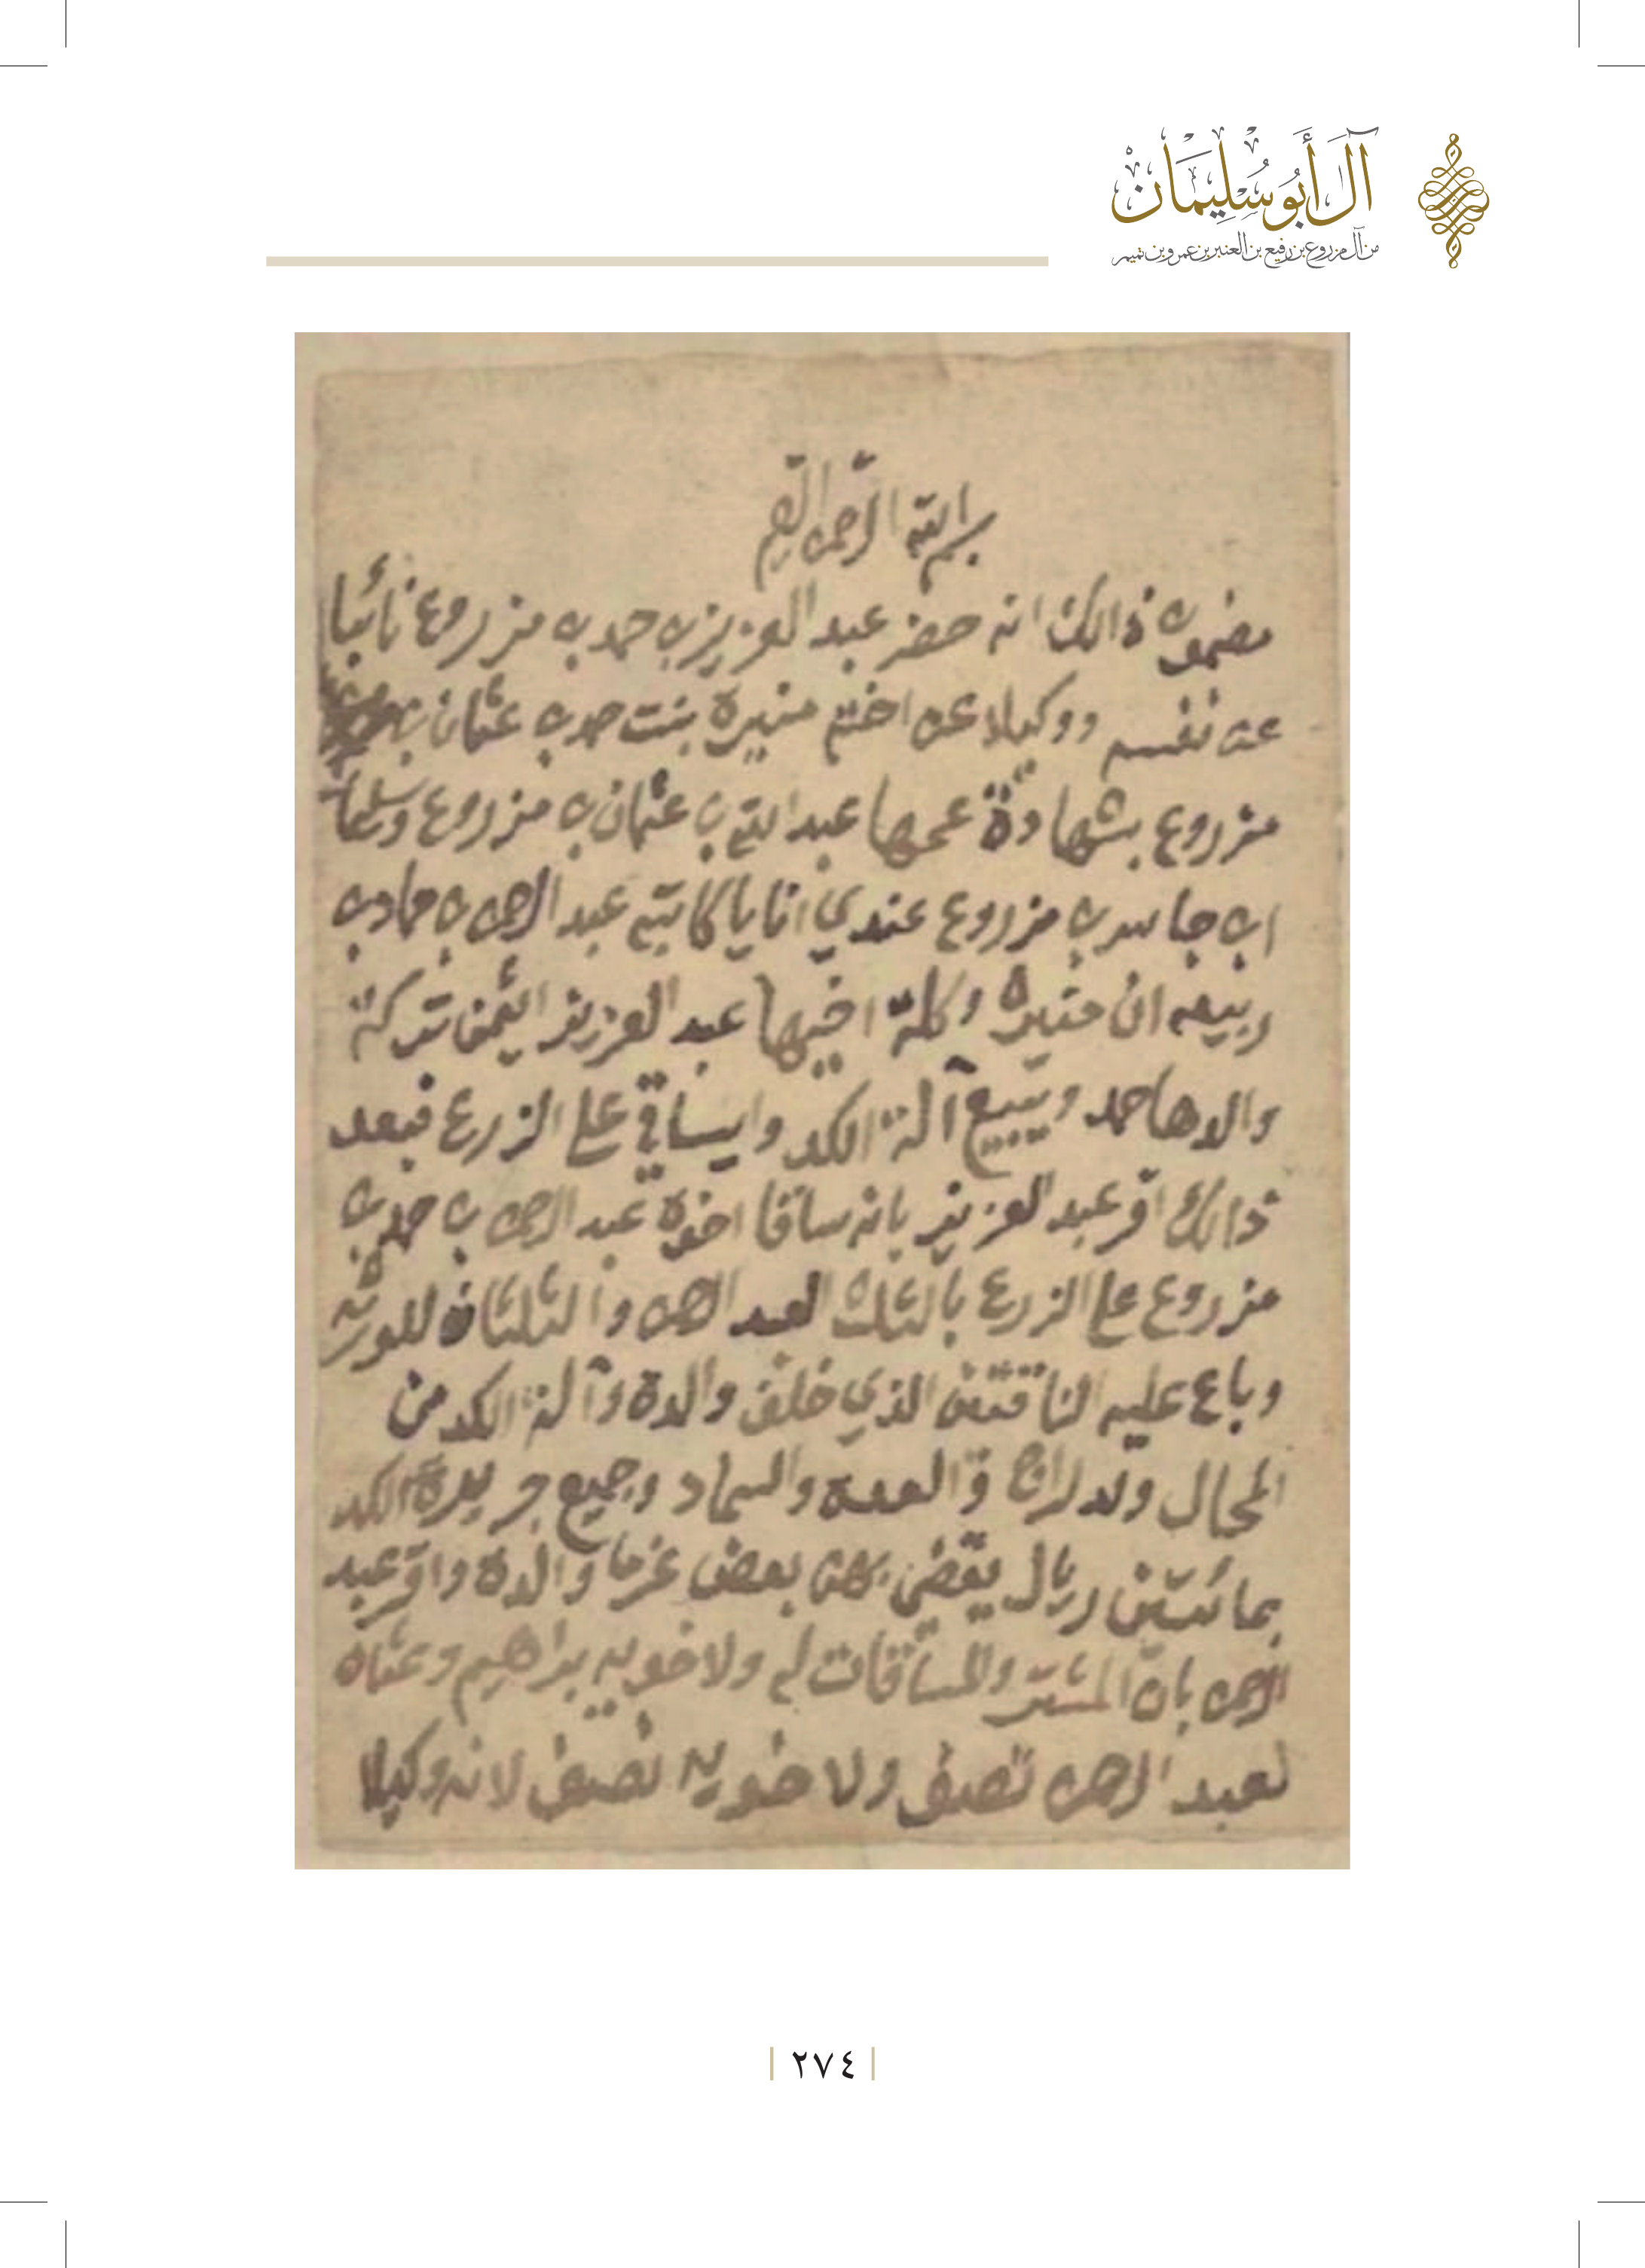 آل أبو سليمان
من آل مزروع بن رفيع بن العنبر بن عمرو بن تميم
بسم الله الرحمن الرحيم
مضمون ذالك انه حضر عبد العزيز بن حمد بن مزروع نائبا
عن نفسه ووكيلا عن اخته منيرة بنت حمد بن عثمان بن
مزروع بشهادة عمها عبد الله بن عثمان بن مزروع وسليمان
ابن جاسر بن مزروع عندي انا يا كاتبه عبد الرحمن بن حماد بن
ربيعه ان منيره وكلة اخيها عبد العزيز ايثمن تركة
والدها حمد ويبيع آلة الكد وايساقي على الزرع فبعد
ذالك اقر عبد العزيز بانه ساقا اخوه عبد الرحمن بن حمد بن
مزروع على الزرع بالثلث لعبد الرحمن والثلثان للورثه
وباع عليه الناقتين الذي خلف والده وآلة الكد من
المحال والدراج والعدة والسماد وجميع جريرة الكد
بمائتين ريال يقضي بهن بعض غرما والده واقر عبد
الرحمن بان المشترى والمساقات له ولاخويه براهيم وعثمان
لعبد الرحمن نصيف ولاخويه نصيف لانه وكيلا
٢٧٤